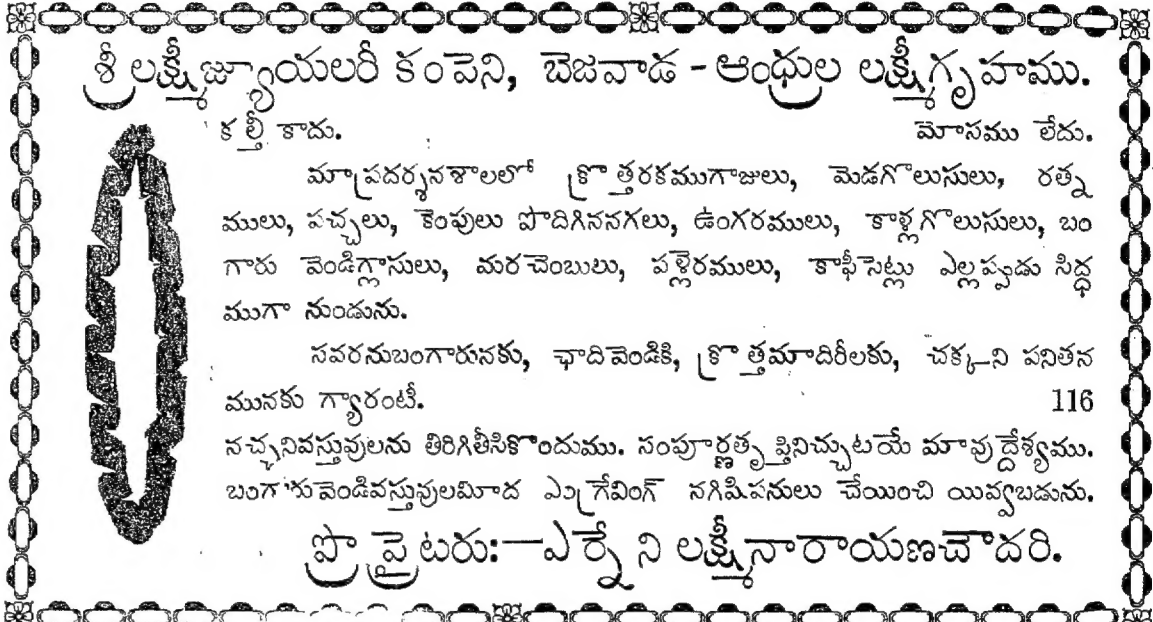 శ్రీ లక్ష్మీజ్యూయలరీ కంపెని, బెజవాడ - ఆంధ్రుల లక్ష్మీగృహము.
కల్తీ కాదు. మోసము లేదు.
మాప్రదర్శనశాలలో క్రొత్తరకముగాజులు, మెడగొలుసులు, రత్న
ములు, పచ్చలు, కెంపులు పొదిగిననగలు, ఉంగరములు, కాళ్లగొలుసులు, బం
గారు వెండిగ్లాసులు, మరచెంబులు, పళ్లెరములు, కాఫీసెట్లు ఎల్లప్పుడు సిద్ధ
ముగా నుండును.
సవరనుబంగారునకు, ఛాదివెండికి, క్రొత్తమాదిరీలకు, చక్కని పనితన
మునకు గ్యారంటీ. 116
నచ్చనివస్తువులను తిరిగితీసికొందుము. సంపూర్ణతృప్తినిచ్చుటయే మావుద్దేశ్యము.
బంగారువెండివస్తువులమీద ఎన్గ్రేవింగ్ నగిషీపనులు చేయించి యివ్వబడును.
ప్రొప్రైటరు:—ఎర్నేని లక్ష్మీనారాయణచౌదరి.